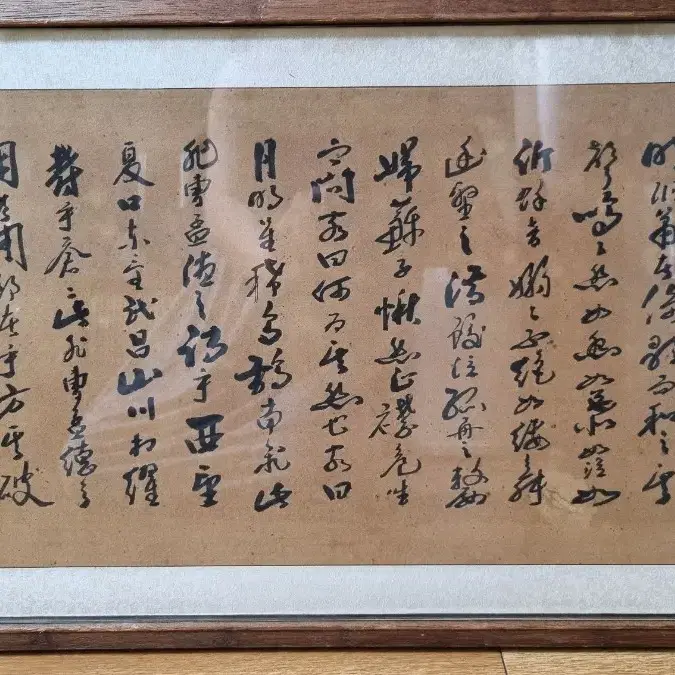 吹洞簫者倚歌而和之其
聲嗚〻然如怨如慕如泣如
訴餘音嫋〻不絶如縷舞
幽壑之潛蛟泣孤舟之嫠
婦蘇子愀然正襟危坐
而問客曰何為其然也客曰
月明星稀烏鵲南飛此
非曹孟德之詩乎西望
夏口東望武昌山川相繆
鬱乎蒼〻此非曹孟德之
困於周郎者乎方其破